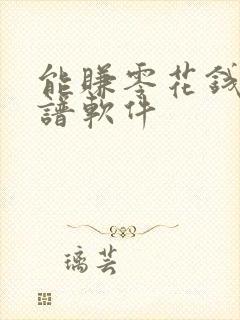 能賺零花錢
譜軟件
璃芸